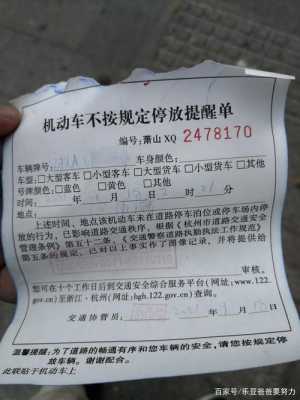 机动车不按规定停放提醒单
编号:萧山 XQ 2478170
车辆牌号: 车身颜色:
车型:□大型客车 □小型客车 □大型货车 □小型货车 □其他
号牌颜色:□蓝色 □黄色 □其他
时间: 时 21 分
地点:
上述时间、地点该机动车未在道路停车泊位或停车场内停
放的行为,已影响道路交通秩序,根据《杭州市道路交通安全
管理条例》第五十二条、《交通警察道路执勤执法工作规范》
第五条的规定,已对以上事实作了图像记录,并将提供给
审核。
您可在十个工作日后到交通安全综合服务平台(网址:www.122.
gov.cn)至浙江·杭州(网址:hgh.122.gov.cn)查询。
交通协管员: 2021 年 月 日
温馨提醒:为了道路的畅通有序和您车辆的安全,请您按规定停
放车辆。谢谢配合。
此联贴于机动车上
百家号/乐亚爸爸要努力